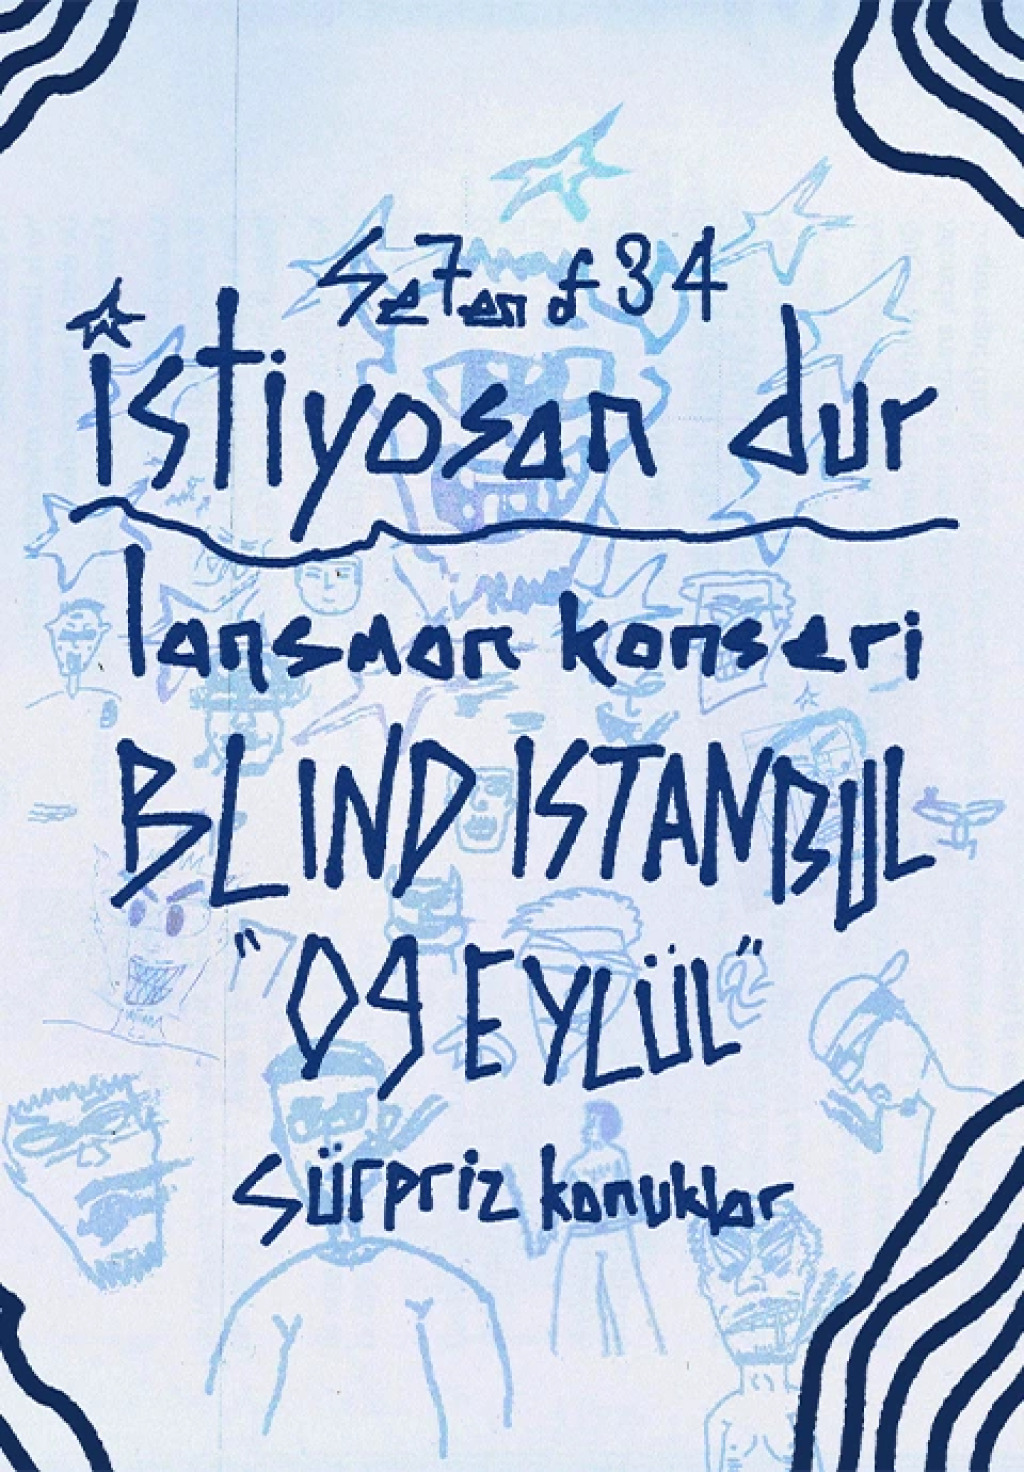 Se7en of 34
istiyosan dur
lansman konseri
BLIND ISTANBUL
"09 EYLÜL"
sürpriz konuklar